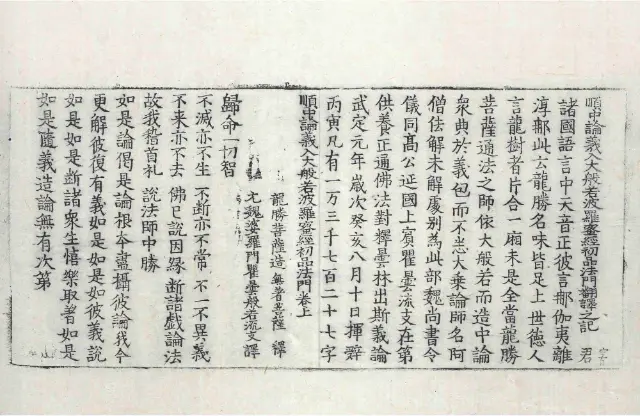 順中論義入大般若波羅蜜經初品法門翻譯之記
諸國語言中天音正彼言那伽夷離
淳那此云龍勝名味皆足上世德人
言龍樹者片合一廂未是全當龍勝
菩薩通法之師依大般若而造中論
眾典於義包而不悉大乘論師名阿
僧佉解未解處別為此部魏尚書令
儀同高公延國上賓瞿曇流支在第
供養正通佛法對釋曇林出斯義論
武定元年歲次癸亥八月十日揮辭
丙寅凡有一万三千七百二十七字
順中論義入大般若波羅蜜經初品法門卷上
龍勝菩薩造 無著菩薩 釋
元魏婆羅門瞿曇般若流支譯
歸命一切智
不滅亦不生 不斷亦不常 不一不異義
不來亦不去 佛已說因緣 斷諸戲論法
故我稽首礼 說法師中勝
如是論偈是論根本盡攝彼論我今
更解彼復有義如是如是彼義說
如是如是斷諸衆生憘樂取著如是
如是隨義造論無有次第